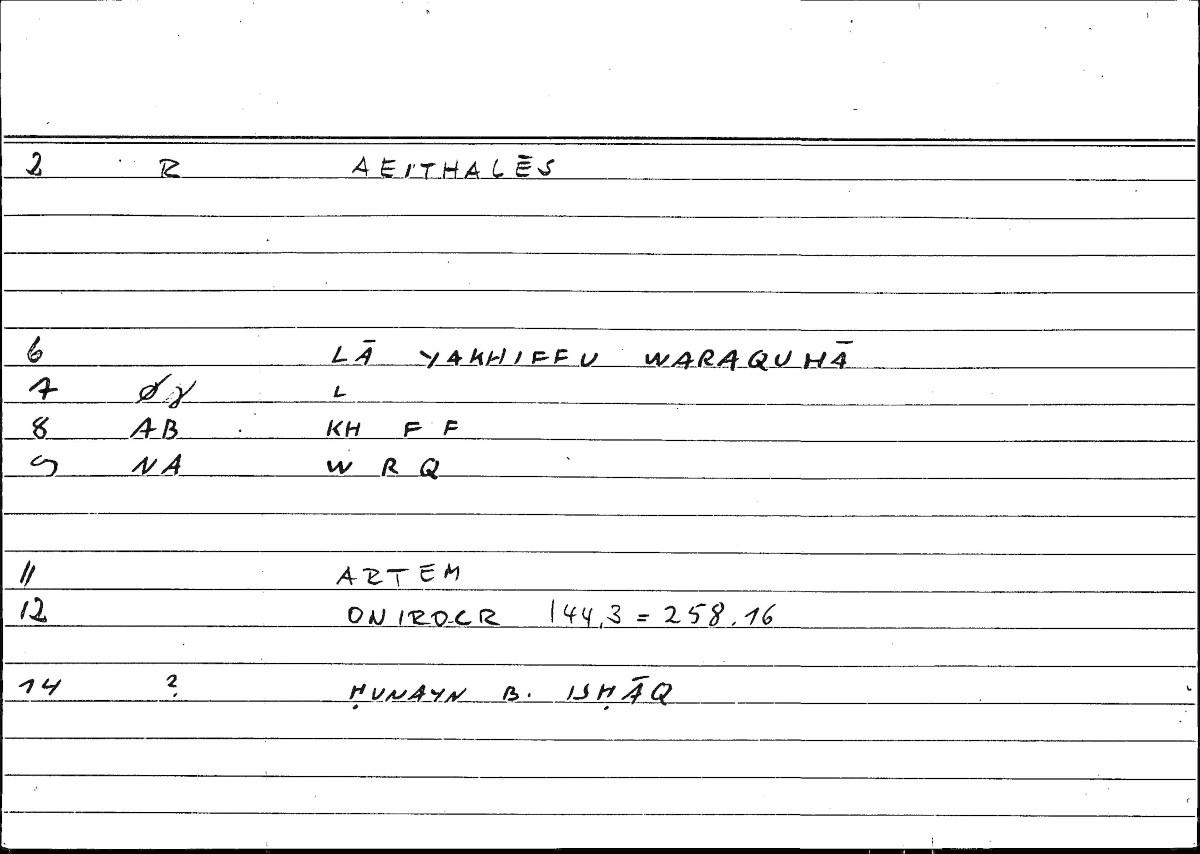 2 R AEITHALĒS
6 LĀ YAKHIFFU WARAQUHĀ
7 Øγ L
8 AB KH F F
9 NA W R Q
11 ARTEM
12 ONIROCR 144,3 = 258.16
14 ? ḤUNAYN B. ISḤĀQ